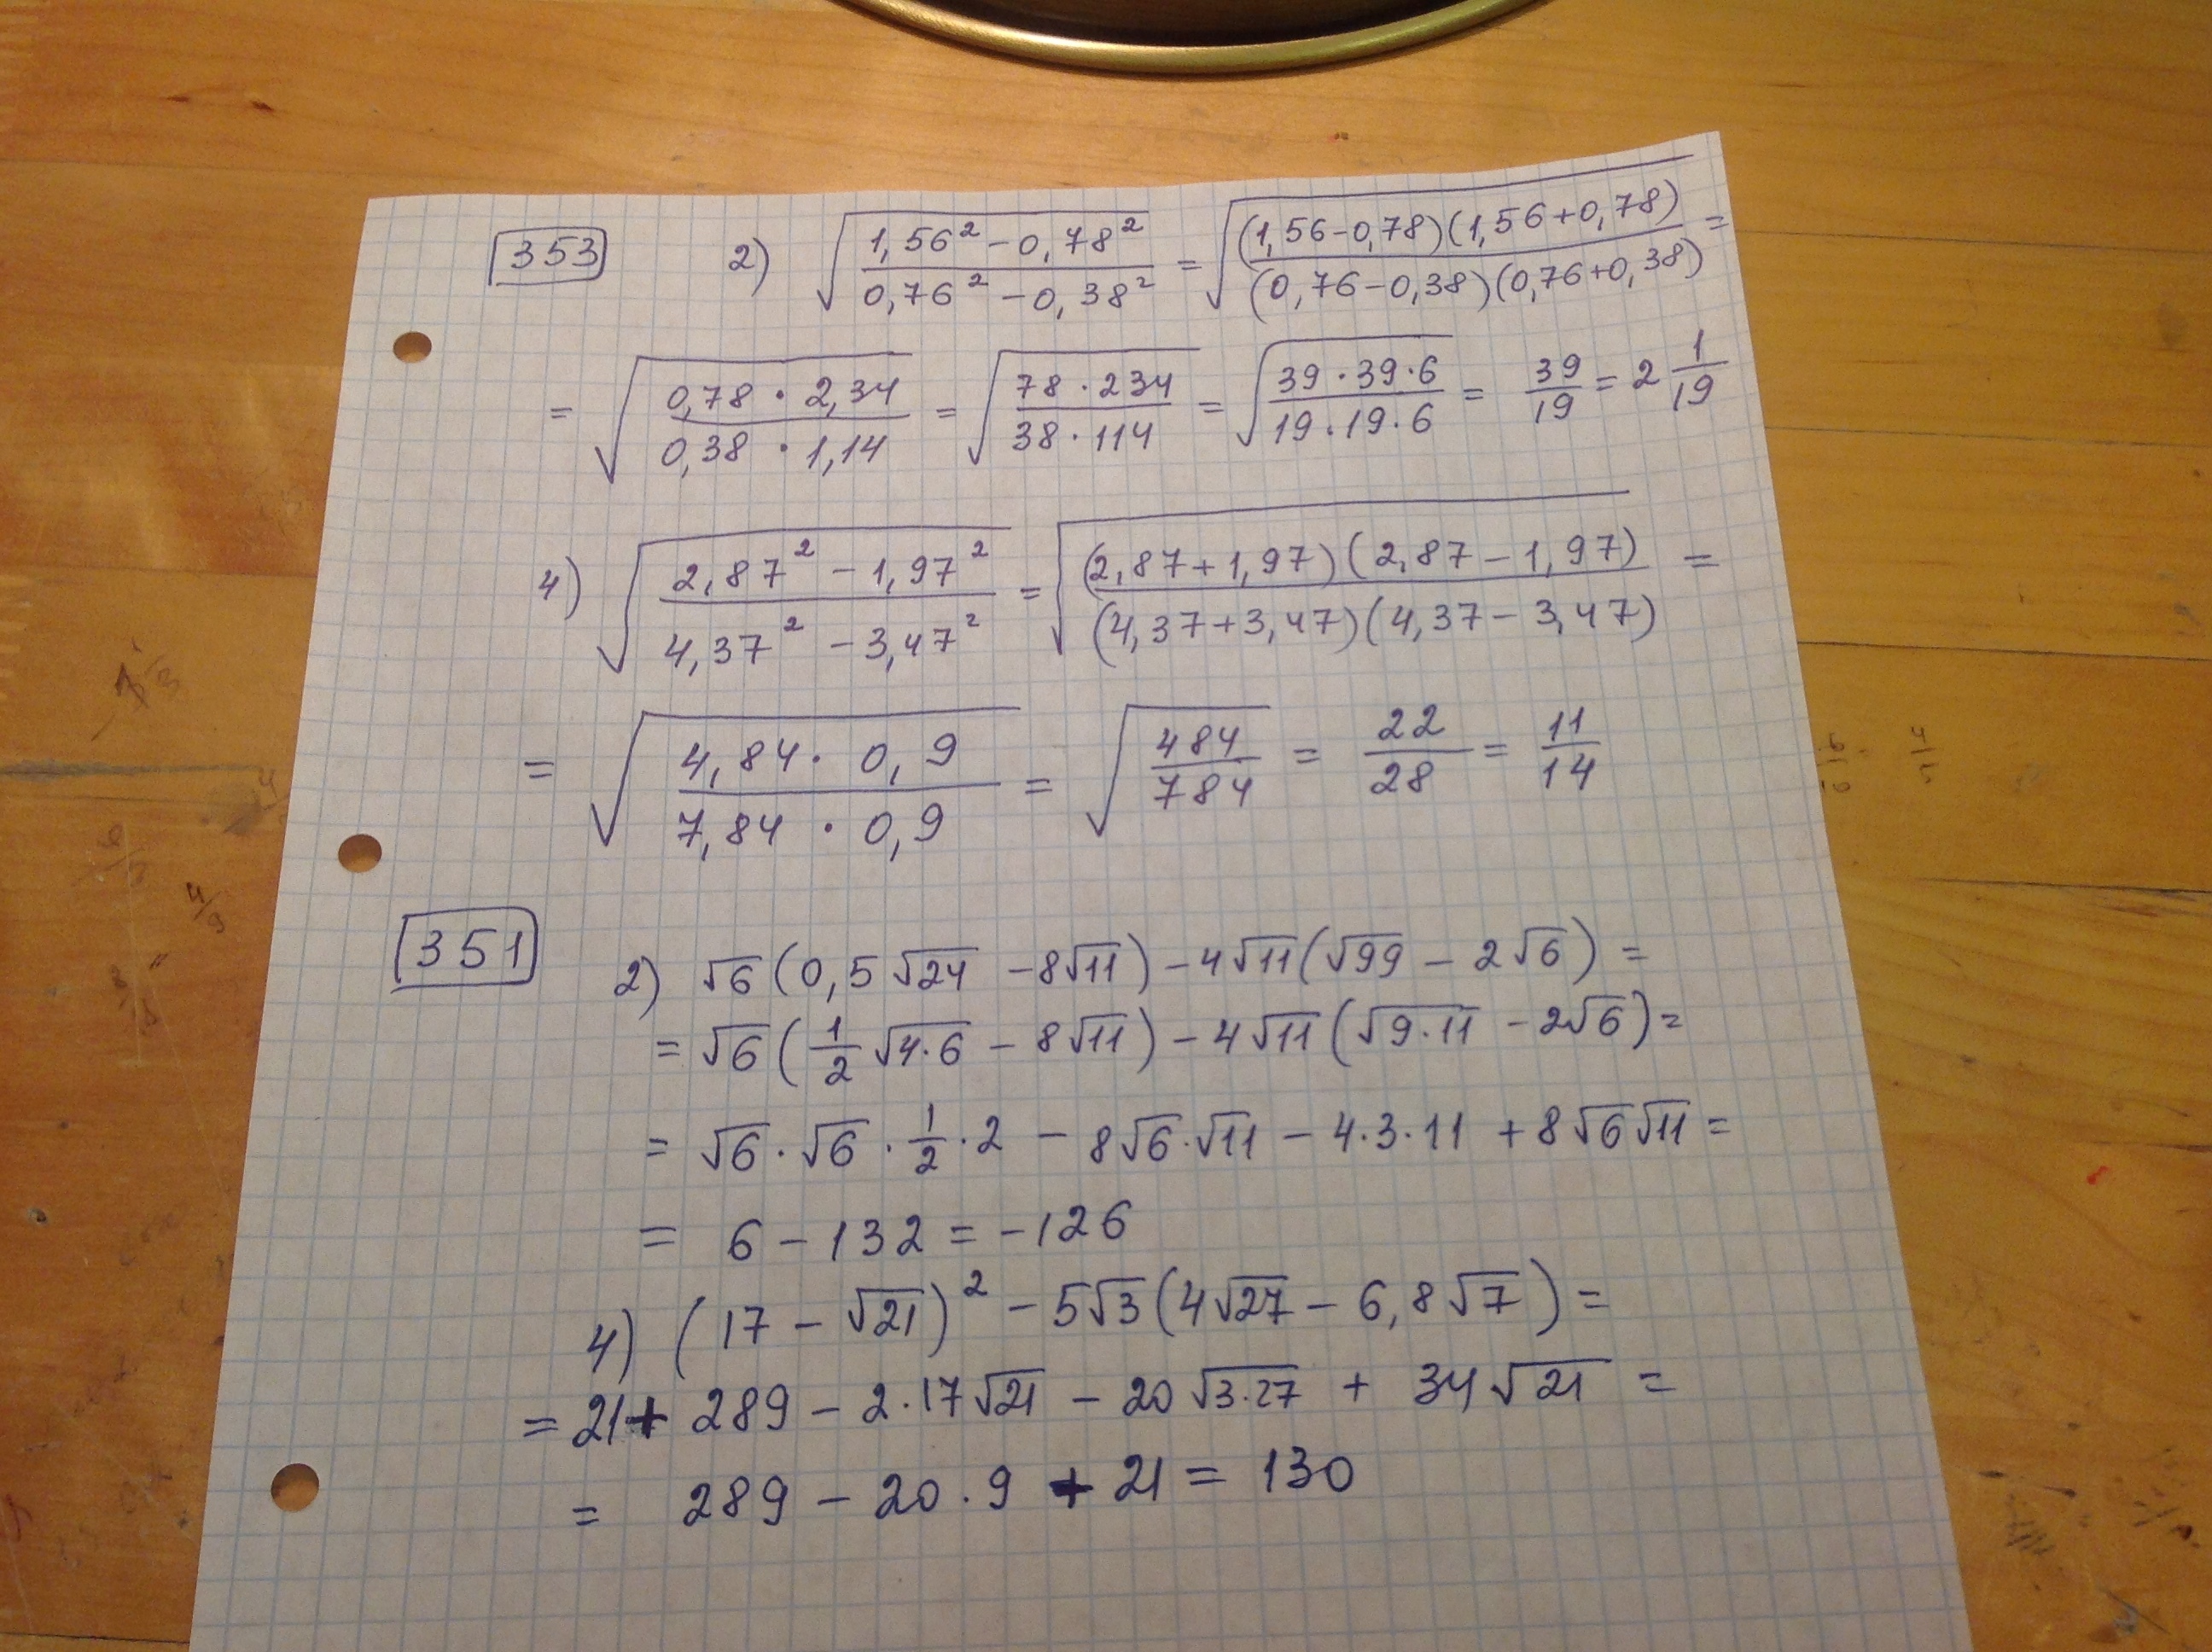 353 2) √((1,56² - 0,78²)/(0,76² - 0,38²)) = √((1,56-0,78)(1,56+0,78)/(0,76-0,38)(0,76+0,38)) =
= √((0,78 · 2,34)/(0,38 · 1,14)) = √((78 · 234)/(38 · 114)) = √((39 · 39 · 6)/(19 · 19 · 6)) = 39/19 = 2 1/19
4) √((2,87² - 1,97²)/(4,37² - 3,47²)) = √((2,87+1,97)(2,87-1,97)/(4,37+3,47)(4,37-3,47)) =
= √((4,84 · 0,9)/(7,84 · 0,9)) = √(484/784) = 22/28 = 11/14
351 2) √6(0,5√24 - 8√11) - 4√11(√99 - 2√6) =
= √6(1/2 √4·6 - 8√11) - 4√11(√9·11 - 2√6) =
= √6 · √6 · 1/2 · 2 - 8√6·√11 - 4·3·11 + 8√6√11 =
= 6 - 132 = -126
4) (17 - √21)² - 5√3(4√27 - 6,8√7) =
= 21 + 289 - 2·17√21 - 20√3·27 + 34√21 =
= 289 - 20·9 + 21 = 130